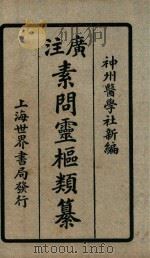 神州醫學社新編
廣註
素問靈樞類纂
上海世界書局發行